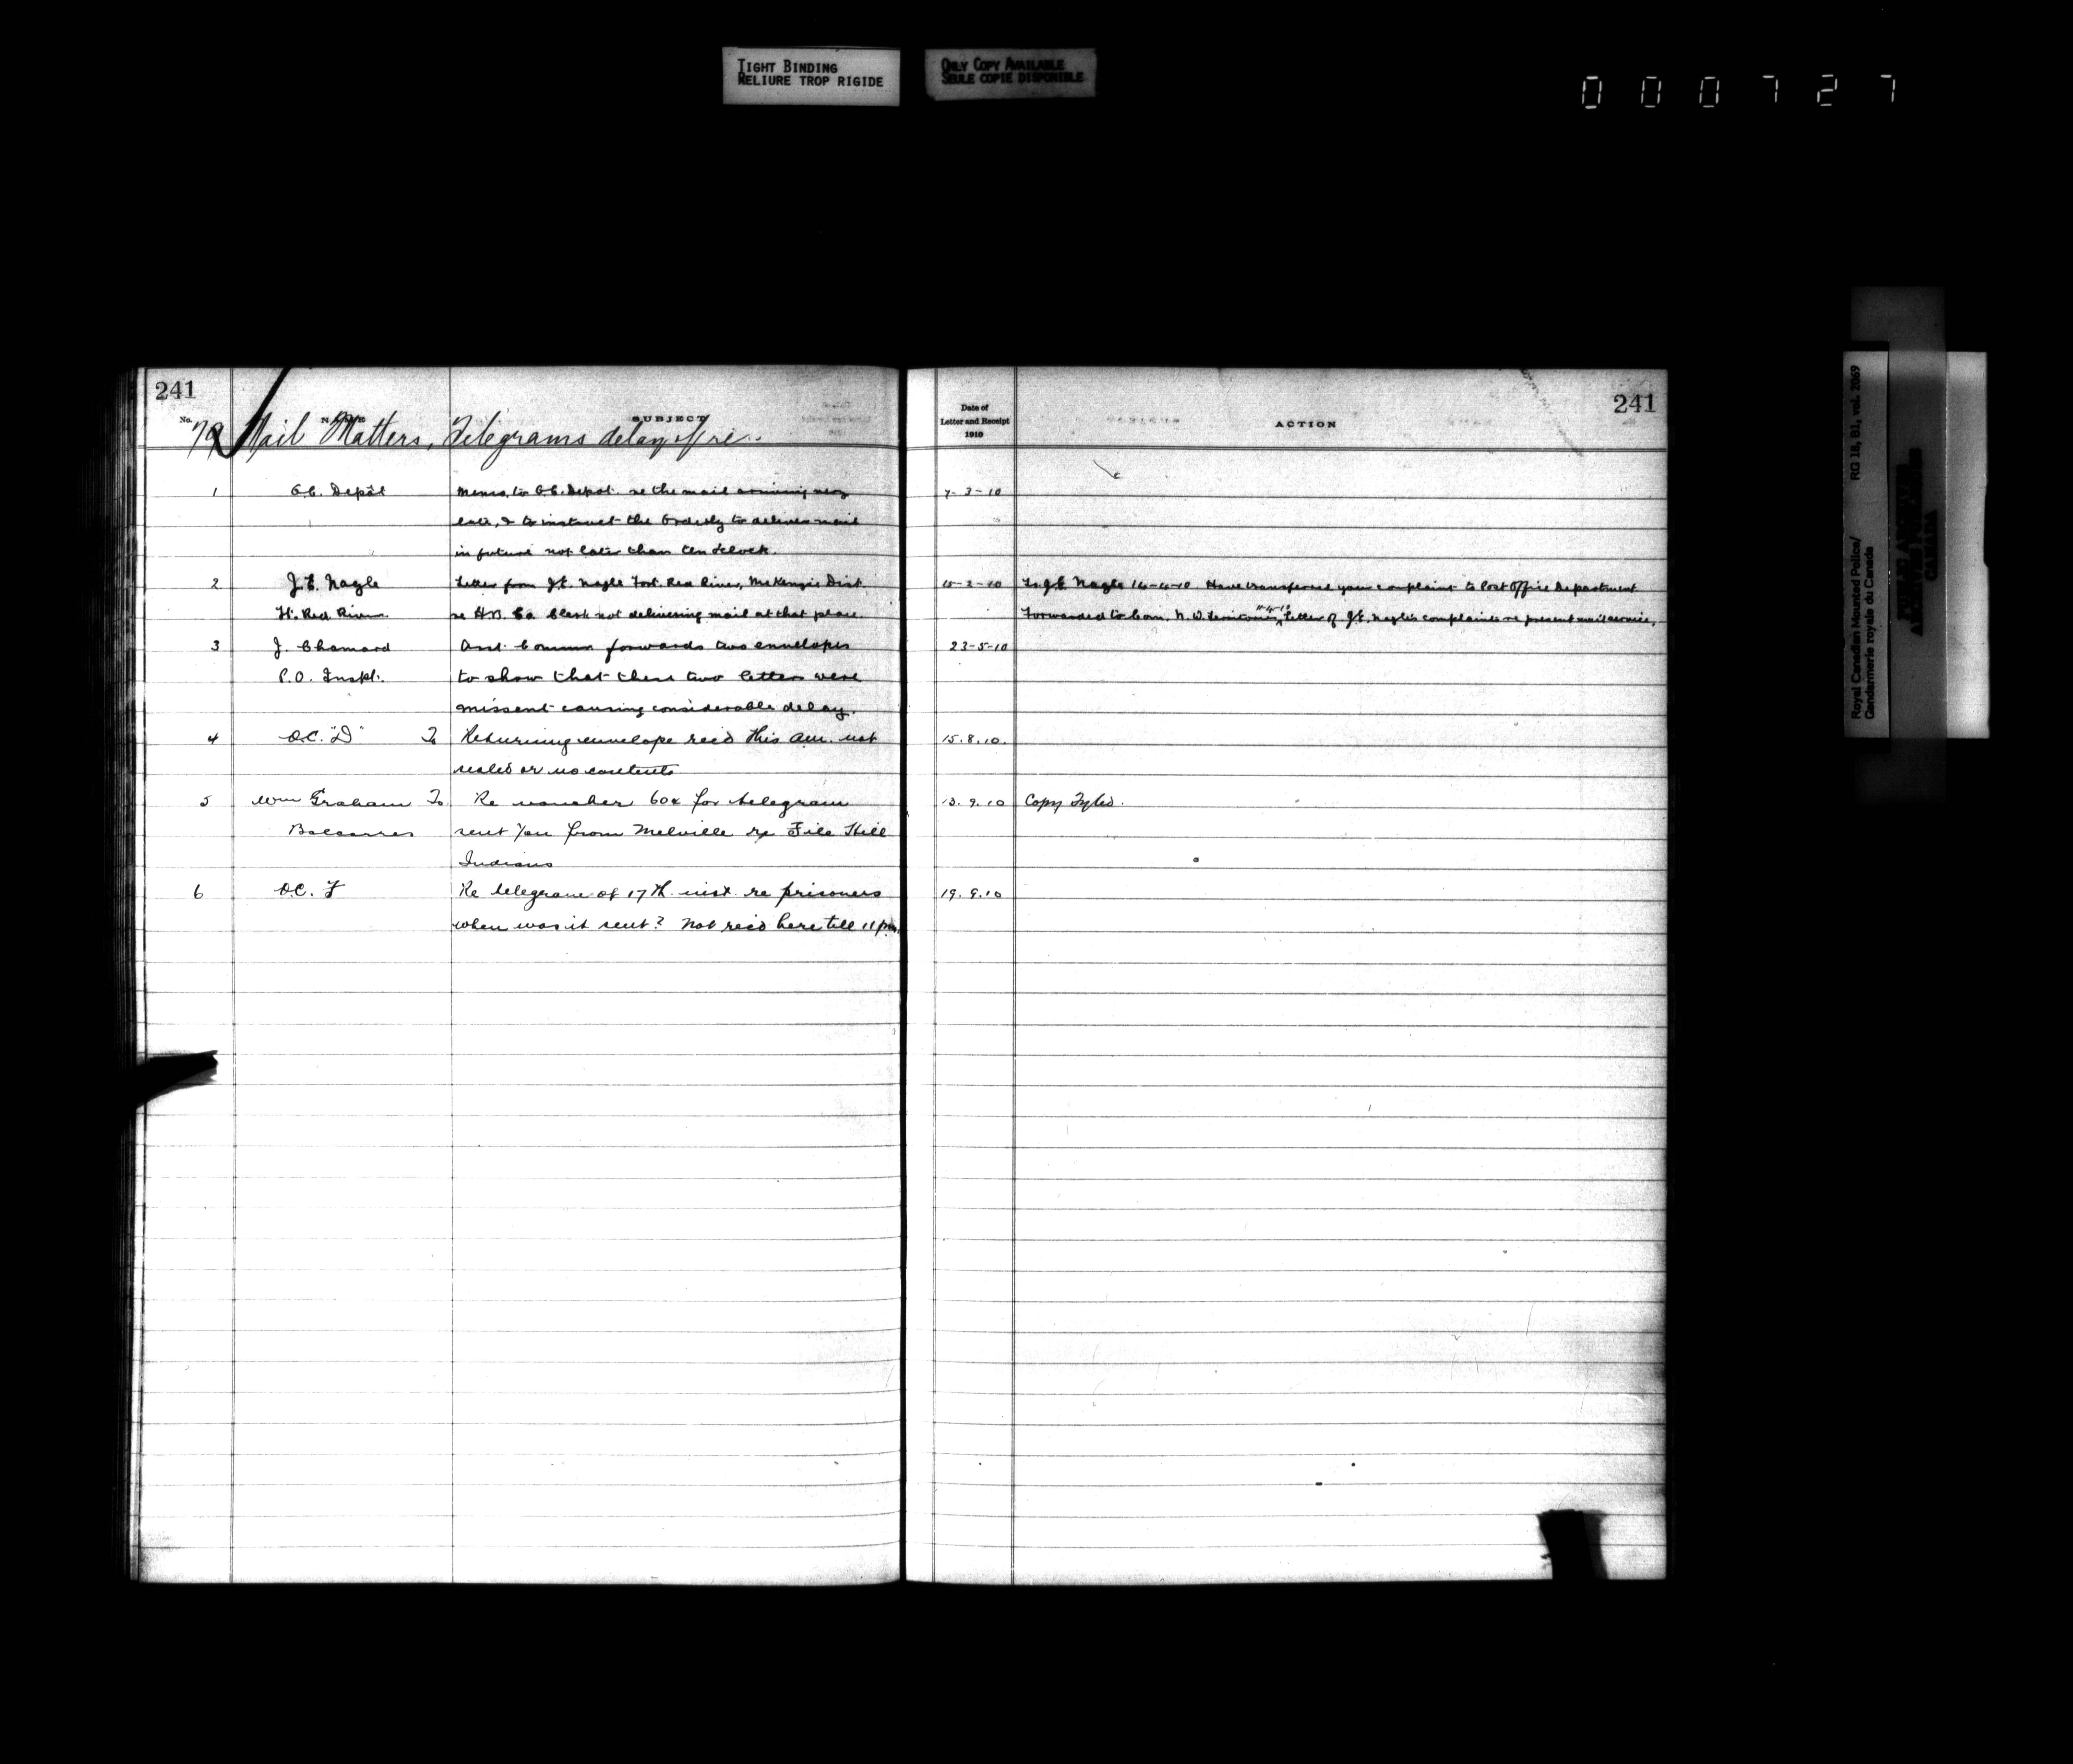 TIGHT BINDING
RELIURE TROP RIGIDE
ONLY COPY AVAILABLE
SEULE COPIE DISPONIBLE
000727
241
No.
NAME
SUBJECT
79 Mail Matters, Telegrams delay of re.
1 O.C. Depôt Memo. to O.C. Depot. re the mail arriving very
late, & to instruct the Orderly to deliver mail
in future not later than ten o'clock.
2 J.E. Nagle Letter from J.E. Nagle Fort. Red River, McKenzie Dist.
Ft. Red River re H.B. Co. Clerk not delivering mail at that place.
3 J. Chamard Asst. Commr forwards two envelopes
P.O. Inspt. to show that these two letters were
missent causing considerable delay.
4 O.C. "D" To Returning envelope rec'd this am. not
sealed or no contents
5 Wm Graham To. Re voucher 60¢ for telegram
Balcarres sent you from Melville re File Hill
Indians
6 O.C. F Re telegram of 17th inst. re prisoners
when was it sent? Not rec'd here till 11 pm.
Date of
Letter and Receipt
1910
ACTION
241
7-3-10
15-2-10 To J.E. Nagle 16-4-10 Have transferred your complaint to Post Office Department
Forwarded to Com. N.W. Territories 11-4-10 Letter of J.E. Nagle's complaints re present mail service.
23-5-10
15.8.10.
13.9.10 Copy Fyled.
19.9.10
Royal Canadian Mounted Police/ RG 18, B1, vol. 2069
Gendarmerie royale du Canada
PUBLIC ARCHIVES
ARCHIVES PUBLIQUES
CANADA